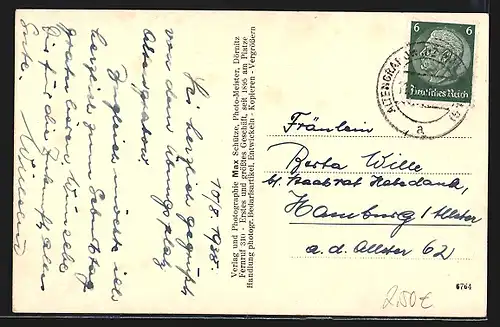 10/8. 1938.
Sei herzlich gegrüßt
von dem Übungsplatz
Altengrabow
Zugleich möchte ich
herzlich zum Geburtstag
gratulieren. Wünsche
Dir für die Zukunft alles
Gute.
Verlag und Photographie Max Schütze, Photo-Meister, Dörnitz
Fernruf 310 - Erstes und größtes Geschäft, seit 1895 am Platze
Handlung photogr. Bedarfsartikel. Entwickeln - Kopieren - Vergrößern
6 6
Deutsches Reich
ALTENGRABOW
a
Fräulein
Berta Wille
bei Staatsrat
Hamburg / Alster
a. d. Alster 62
6764
2,50€